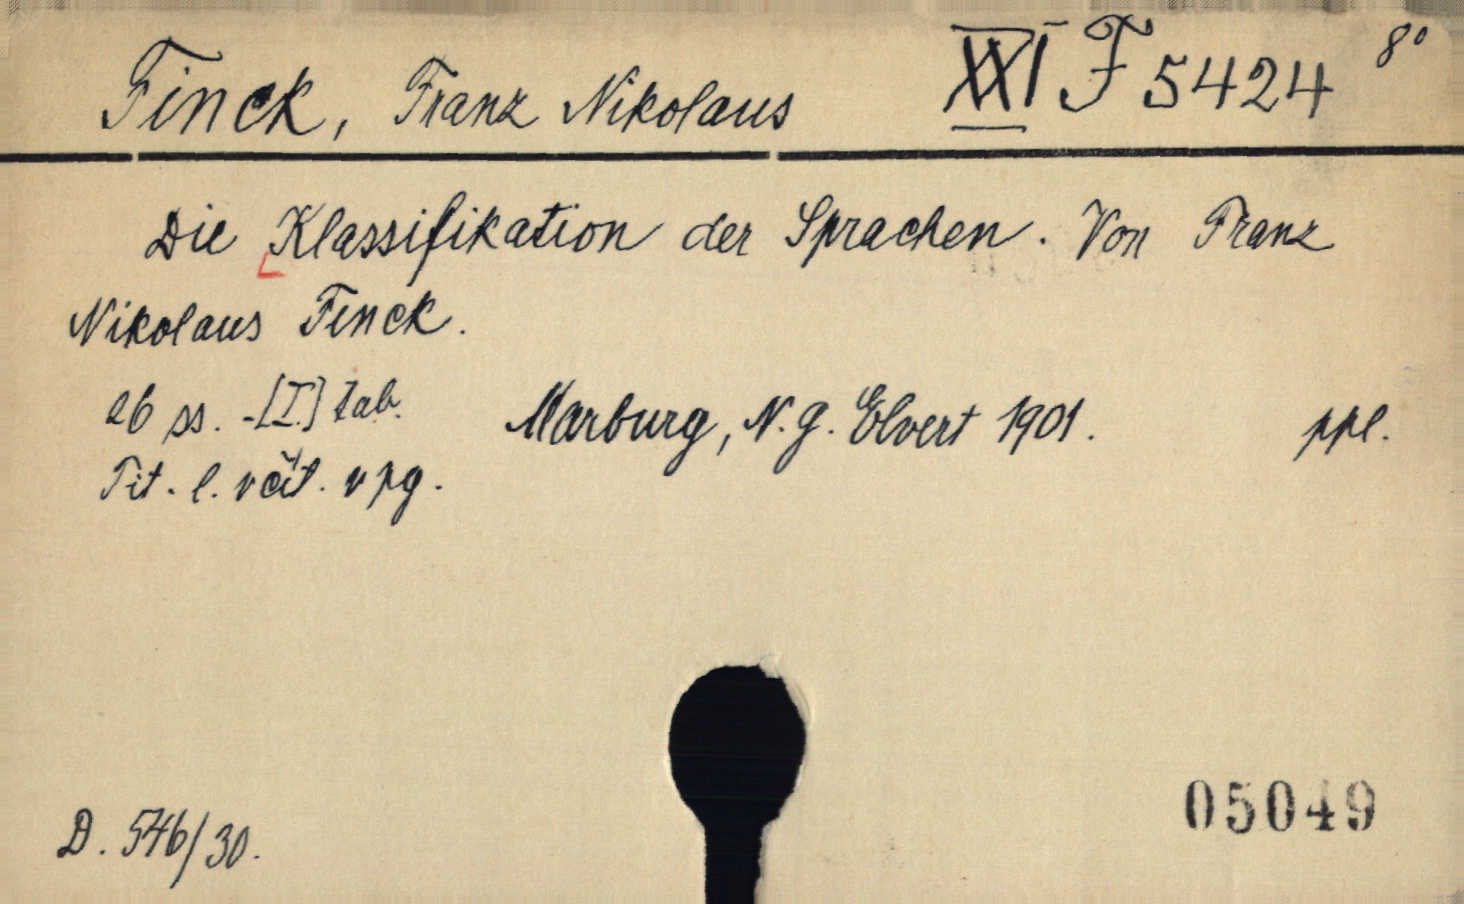 Finck, Franz Nikolaus XXI F 5424 8°
Die Klassifikation der Sprachen. Von Franz
Nikolaus Finck.
26 ss. -[I.] tab. Marburg, N. G. Elvert 1901. ppl.
Tit. l. včít. v pg.
D. 546/30.
05049